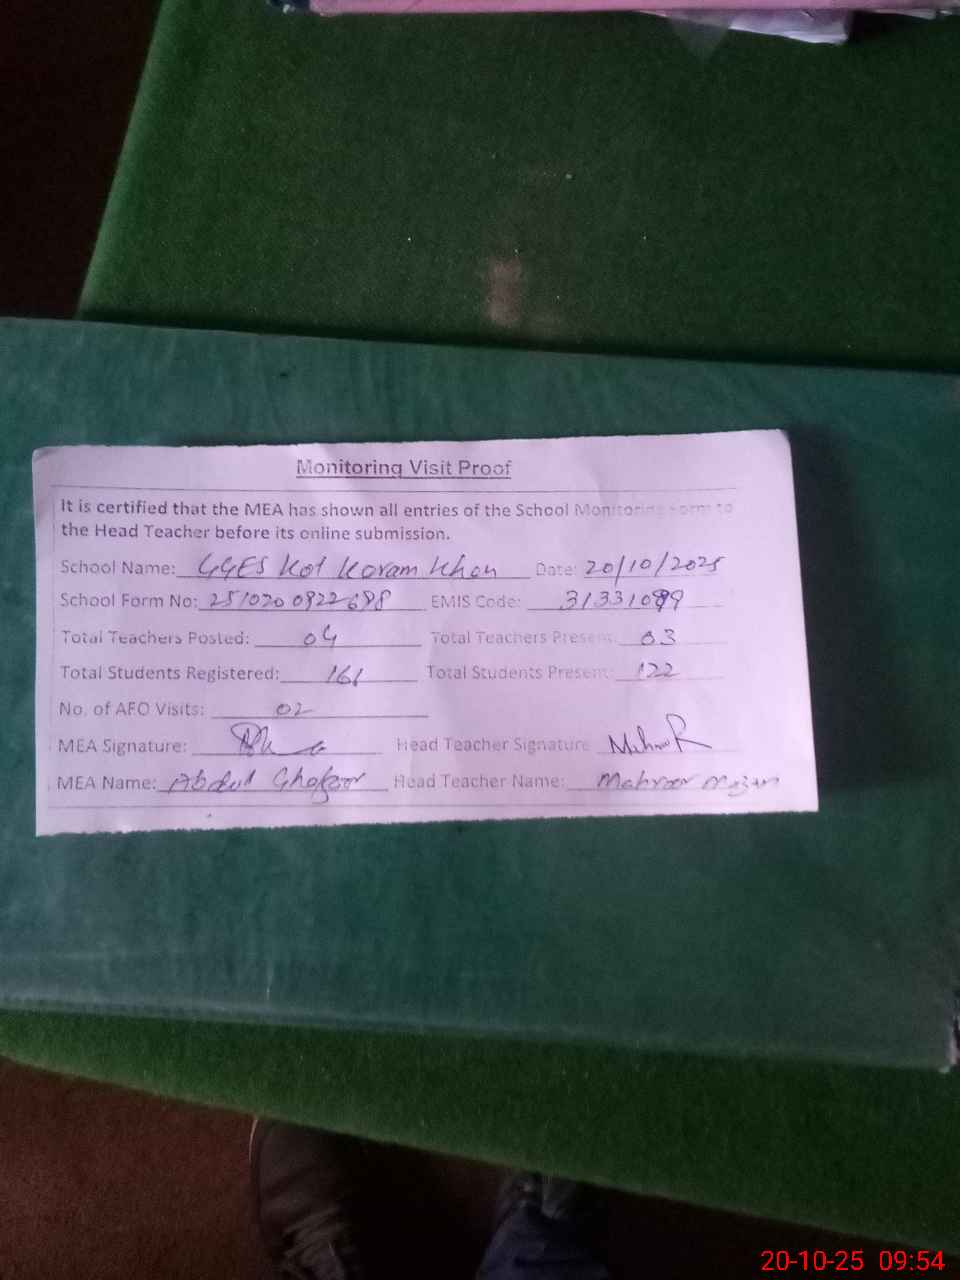 Monitoring Visit Proof
It is certified that the MEA has shown all entries of the School Monitoring Form to
the Head Teacher before its online submission.
School Name: GGES Kot Karam Khan Date: 20/10/2025
School Form No: 251020 0922688 EMIS Code: 31331099
Total Teachers Posted: 04 Total Teachers Present: 03
Total Students Registered: 161 Total Students Present: 122
No. of AEO Visits: 02
MEA Signature: Head Teacher Signature
MEA Name: Abdul Ghafoor Head Teacher Name:
20-10-25 09:54